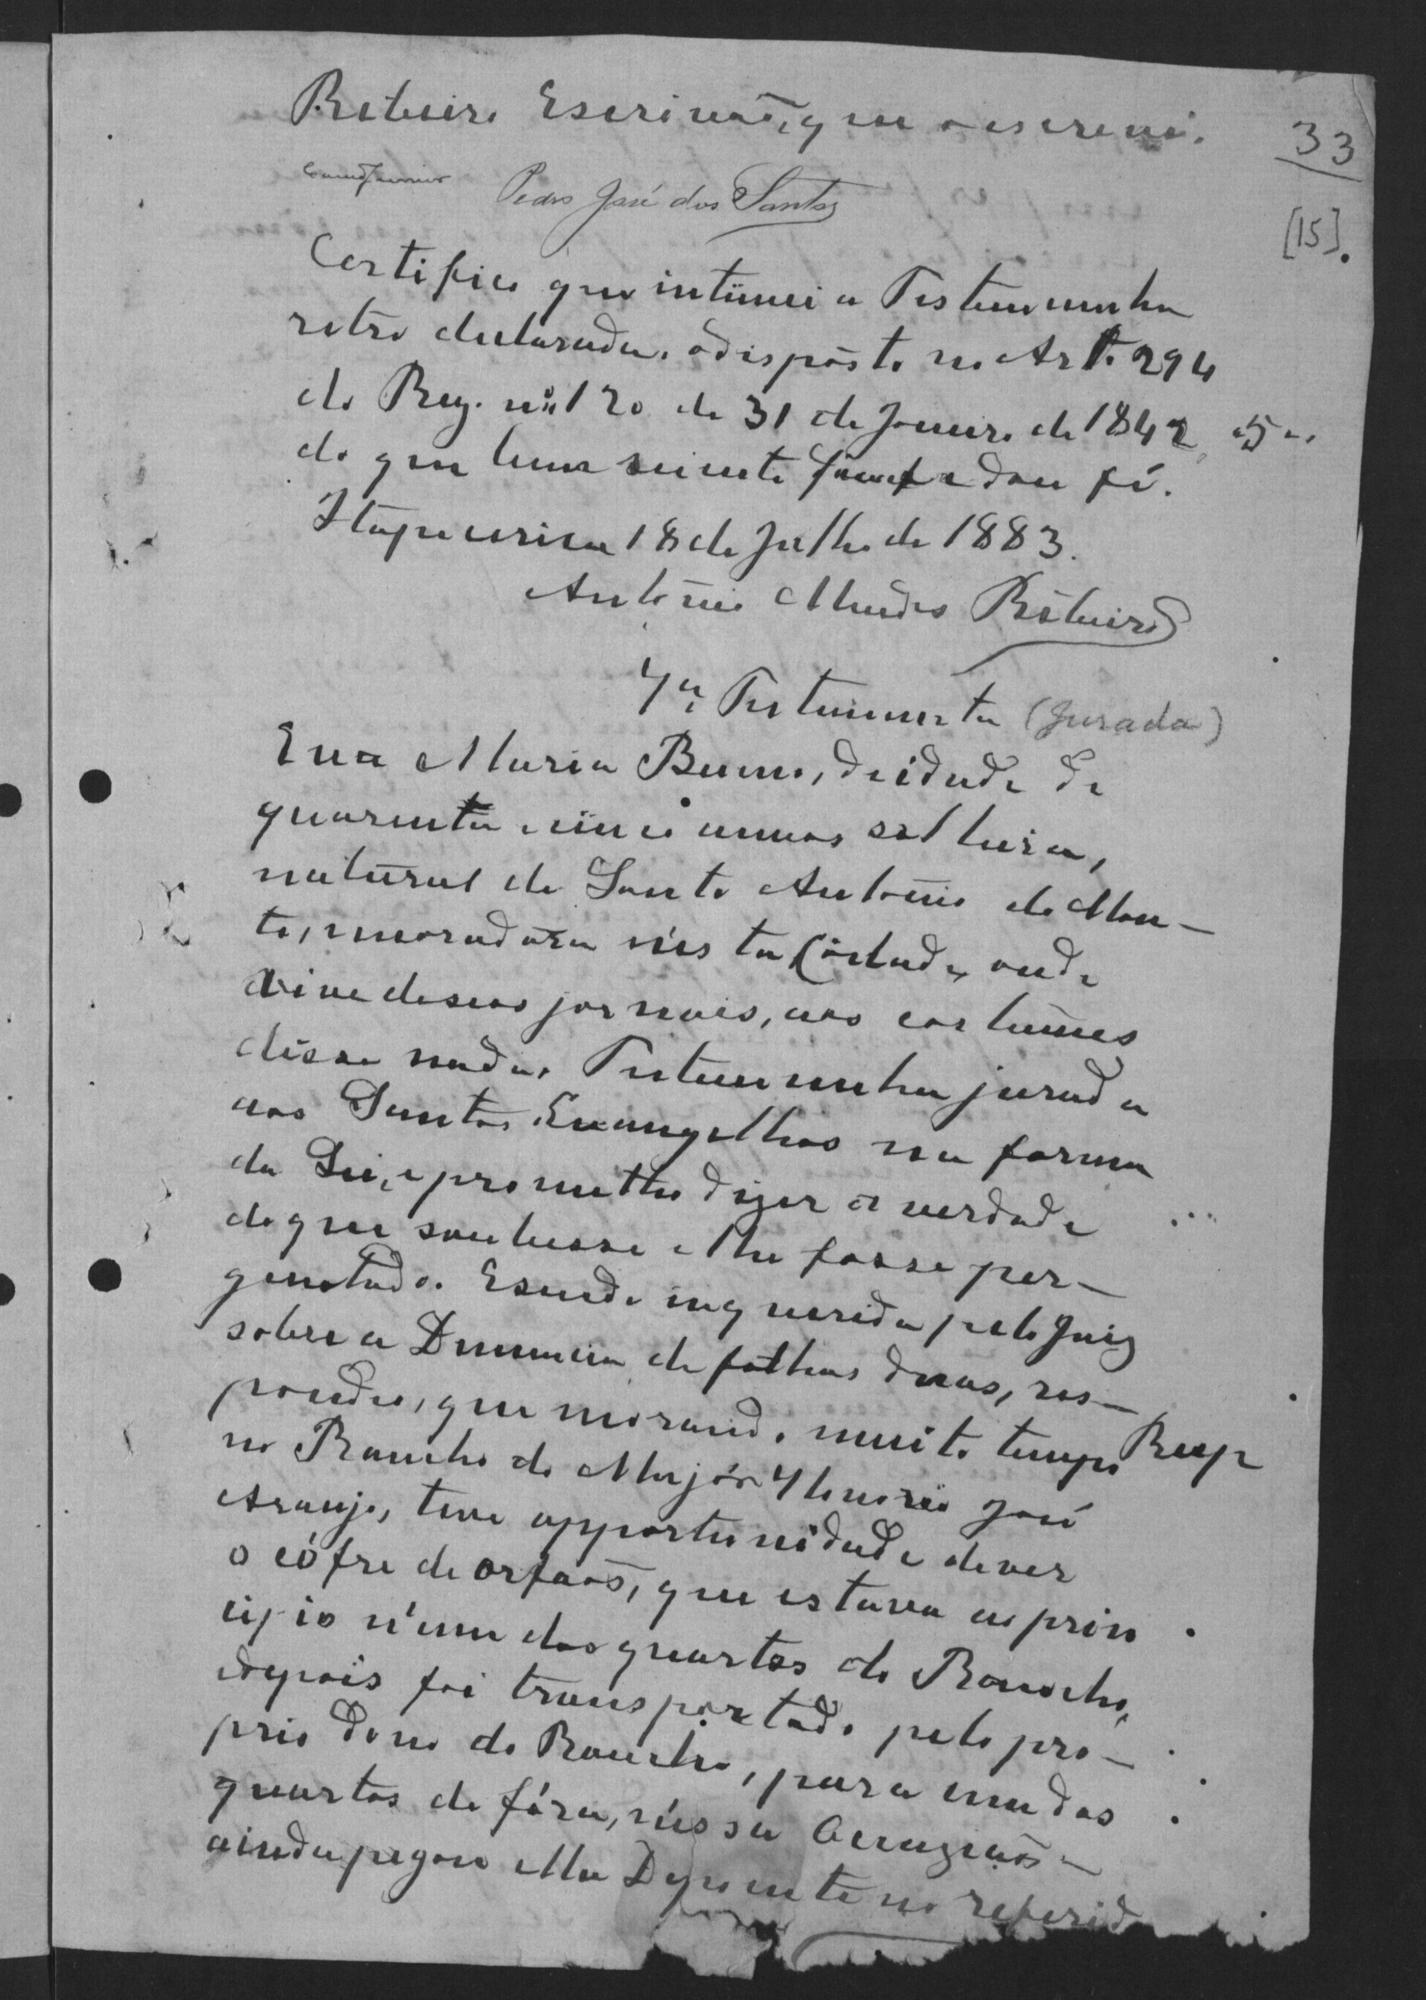 Ribeiro Escrivão, que o escrevi.
33
Pedro José dos Santos
[15].
Certifico que intimei a Testemunha
retro declarada, o disposto no Art. 294
do Reg. nº 120 de 31 de Janeiro de 1842,
do que ficou sciente dou fé.
Itapecerica 18 de Julho de 1883.
Antônio Mendes Ribeiro
4ª Testemunha (Jurada)
Eva Maria Bueno, de idade de
quarenta e cinco annos solteira,
natural de Santo Antônio do Mon-
te, moradora n'esta Cidade, onde
vive de seos jornais, aos costumes
disse nada. Testemunha jurada
aos Santos Evangelhos na forma
da Lei, e prometteo dizer a verdade
do que soubesse e lhe fosse per-
guntado. E sendo inquerida pelo Juiz
sobre a Denuncia de folhas duas, res-
pondeo, que morando muito tempo Resp
no Rancho do Major Honorio José
Araujo, teve opportunidade de ver
o cófre de orfãos, que estava ao prin
cipio n'um dos quartos do Rancho,
depois foi transportado pelo pro-
prio dono do Rancho, para um dos
quartos de fóra, n'essa occasião
ainda pegou ella Depoente no referid